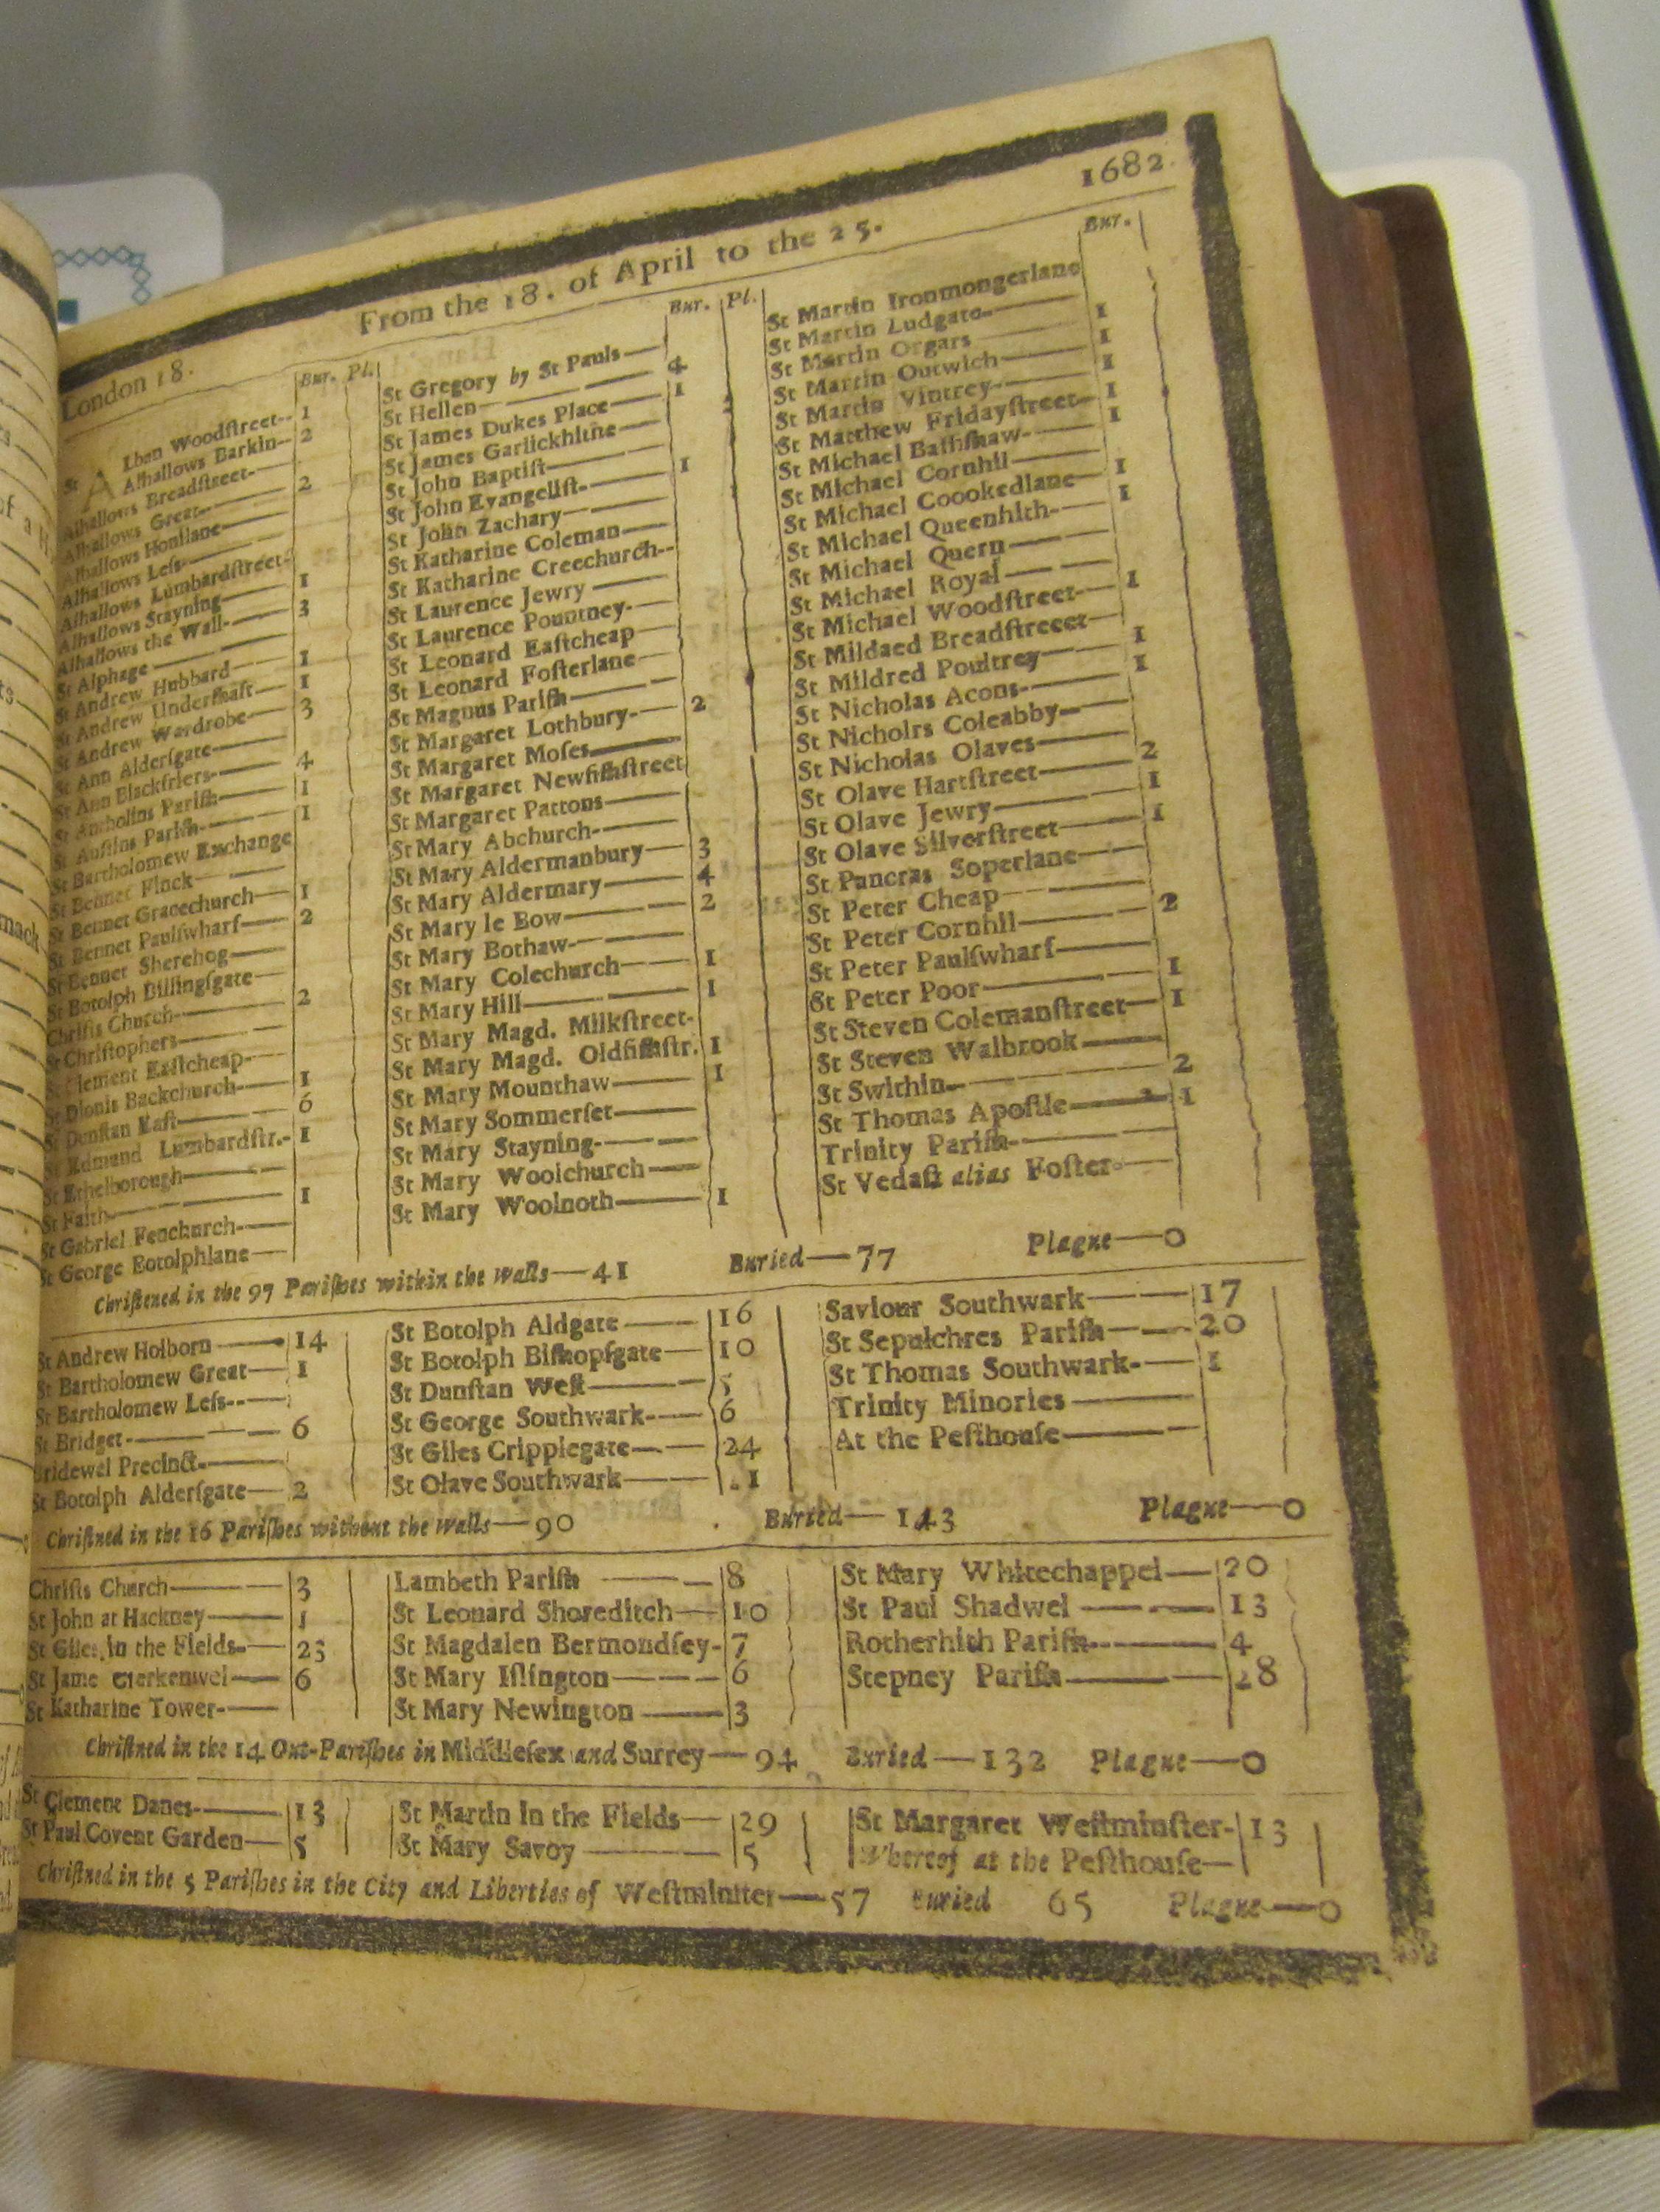 London 18.
From the 18. of April to the 25.
1682
Bur. Pl.
St Alban Woodſtreet-- 1
Alhallows Barkin— 2
Alhallows Breadſtreet-
Alhallows Great— 2
Alhallows Honilane—
Alhallows Leſs—
Alhallows Lumbardſtreet-
Alhallows Stayning— 1
Alhallows the Wall- 3
St Alphage——
St Andrew Hubbard— 1
St Andrew Underſhaft— 1
St Andrew Wardrobe— 3
St Ann Alderſgate—
St Ann Blackfriers— 4
St Antholins Pariſh— 1
St Auſtins Pariſh— 1
St Bartholomew Exchange
St Bennet Finck—
St Bennet Gracechurch— 1
St Bennet Paulſwharf— 2
St Bennet Sherehog—
St Botolph Billingſgate—
Chriſts Church— 2
St Chriſtophers—
St Clement Eaſtcheap-
St Dionis Backchurch— 1
St Dunſtan Eaſt— 6
St Edmund Lumbardſtr.- 1
St Ethelborough—
St Faith— 1
St Gabriel Fenchurch-—
St George Botolphlane—
Bur. Pl.
St Gregory by St Pauls—
St Hellen— 4
St James Dukes Place— 1
St James Garlickhithe—
St John Baptiſt—
St John Evangeliſt- 1
St John Zachary—
St Katharine Coleman—
St Katharine Creechurch--
St Laurence Jewry—
St Laurence Pountney-—
St Leonard Eaſtcheap
St Leonard Foſterlane—
St Magnus Pariſh—
St Margaret Lothbury-— 2
St Margaret Moſes—
St Margaret Newfiſhſtreet
St Margaret Pattons—
St Mary Abchurch-—
St Mary Aldermanbury— 3
St Mary Aldermary— 4
St Mary le Bow— 2
St Mary Bothaw-—
St Mary Colechurch— 1
St Mary Hill— 1
St Mary Magd. Milkſtreet-
St Mary Magd. Oldfiſhſtr. 1
St Mary Mounthaw— 1
St Mary Sommerſet—
St Mary Stayning-—
St Mary Woolchurch—
St Mary Woolnoth— 1
Bur.
St Martin Ironmongerlane
St Martin Ludgate— 1
St Martin Orgars— 1
St Martin Outwich— 1
St Martin Vintrey-— 1
St Matthew Fridayſtreet— 1
St Michael Baſhſhaw-—
St Michael Cornhil— 1
St Michael Coookedlane 1
St Michael Queenhith-—
St Michael Quern—
St Michael Royal— 1
St Michael Woodſtreet-—
St Mildaed Breadſtreeet— 1
St Mildred Poultrey— 1
St Nicholas Acons-—
St Nicholrs Coleabby—
St Nicholas Olaves— 2
St Olave Hartſtreet— 1
St Olave Jewry— 1
St Olave Silverſtreet—
St Pancras Soperlane—
St Peter Cheap— 2
St Peter Cornhil—
St Peter Paulſwharf— 1
St Peter Poor— 1
St Steven Colemanſtreet—
St Steven Walbrook— 2
St Swithin— 1
St Thomas Apoſtle—
Trinity Pariſh-—
St Vedaſt alias Foſter-—
Chriſtened in the 97 Pariſhes within the Walls—41 Buried—77 Plague—0
St Andrew Holborn— 14
St Bartholomew Great— 1
St Bartholomew Leſs--—
St Bridget-— 6
Bridewel Precinct.—
St Botolph Alderſgate— 2
St Botolph Aldgate— 16
St Botolph Biſhopſgate— 10
St Dunſtan Weſt— 5
St George Southwark-— 6
St Giles Cripplegate— 24
St Olave Southwark— .1
Saviour Southwark— 17
St Sepulchres Pariſh— 20
St Thomas Southwark-— 1
Trinity Minories—
At the Peſthouſe—
Chriſtned in the 16 Pariſhes without the Walls—90 Buried—143 Plague—0
Chriſts Church— 3
St John at Hackney— 1
St Giles in the Fields-— 23
St Jame Clerkenwel— 6
St Katharine Tower-—
Lambeth Pariſh— 8
St Leonard Shoreditch— 10
St Magdalen Bermondſey- 7
St Mary Iſlington— 6
St Mary Newington— 3
St Mary Whitechappel— 20
St Paul Shadwel— 13
Rotherhith Pariſh— 4
Stepney Pariſh— 28
Chriſtned in the 14 Out-Pariſhes in Middleſex and Surrey—94 Buried—132 Plague—0
St Clement Danes-— 13
St Paul Covent Garden— 5
St Martin in the Fields— 29
St Mary Savoy— 5
St Margaret Weſtminſter- 13
Whereof at the Peſthouſe—
Chriſtned in the 5 Pariſhes in the City and Liberties of Weſtminſter—57 Buried 65 Plague—0